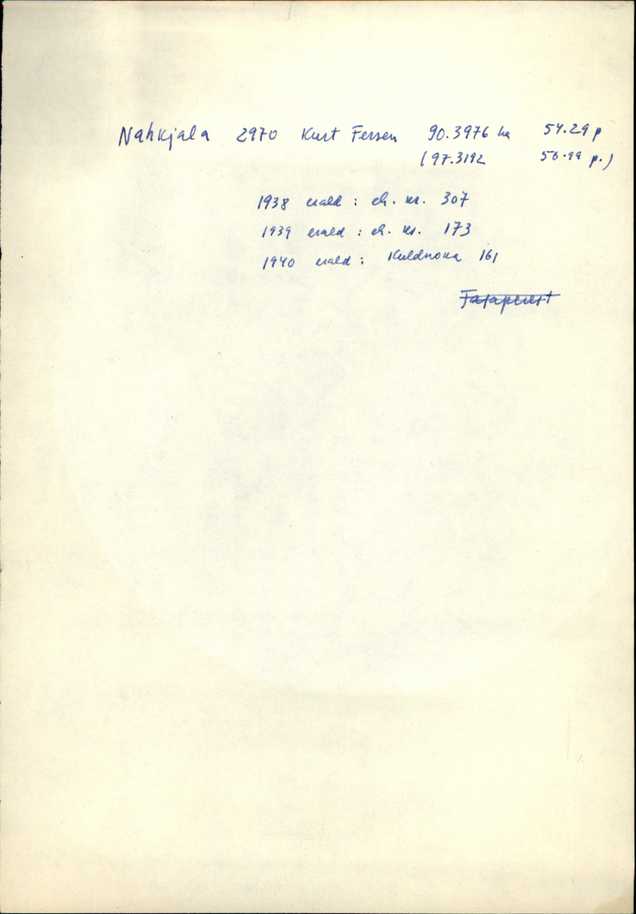 Nahkjala 2970 Kurt Fersen 90.3976 ha 54.29 p
(97.3192 56.99 p.)
1938 erald : ch. nr. 307
1939 erald : ch. nr. 173
1940 erald : Kuldnoka 161